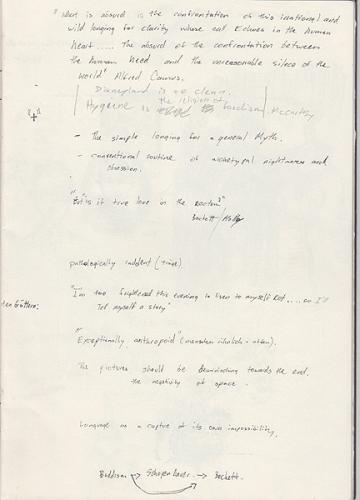 "What is absurd is the confrontation of this irrational and
wild longing for clarity whose call Echoes in the human
heart..... The absurd of the confrontation between
the human Need and the unreasonable silence of the
world" Albert Camus.
Disneyland is so clean.
Hygiene is the religion of fascism. McCarthy
"+"
- The simple longing for a general Myth.
- conventional routine of archetypal nightmares and
obsession.
"But is it true love in the rectum?"
Beckett / Molloy
pathologically indolent (
"I'm too frightened this evening to listen to myself Rot..... so I'll
Tell myself a story"
ten Göttern:
"Exceptionally anthropoid" (menschen ähnlich - affen).
The pictures should be diminishing towards the end.
the negativity of space.
Language as a capture of its own impossibility.
Buddism -> Schopenhauer -> Beckett.